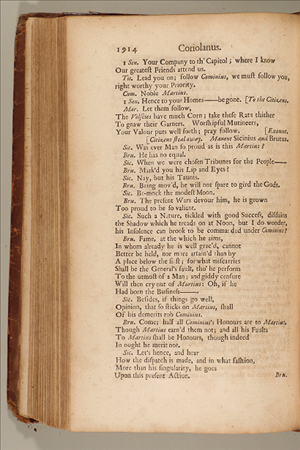 1914 Coriolanus.
1 Sen. Your Company to th' Capitol; where I know
Our greatest Friends attend us.
Tit. Lead you on; follow Cominius, we must follow you,
right worthy your Priority.
Com. Noble Martius.
1 Sen. Hence to your Homes—be gone. [To the Citizens.
Mar. Let them follow,
The Volscies have much Corn; take these Rats thither
To gnaw their Garners. Worshipful Mutineers,
Your Valour puts well forth; pray follow. [Exeunt.
[Citizens steal away. Manent Sicinius and Brutus.
Sic. Was ever Man so proud as is this Martius?
Bru. He has no equal.
Sic. When we were chosen Tribunes for the People—
Bru. Mark'd you his Lip and Eyes?
Sic. Nay, but his Taunts.
Bru. Being mov'd, he will not spare to gird the Gods.
Sic. Be-mock the modest Moon.
Bru. The present Wars devour him, he is grown
Too proud to be so valiant.
Sic. Such a Nature, tickled with good Success, disdains
the Shadow which he treads on at Noon, but I do wonder,
his Insolence can brook to be commanded under Cominius?
Bru. Fame, at the which he aims,
In whom already he is well grac'd, cannot
Better be held, nor more attain'd than by
A place below the first; for what miscarries
Shall be the General's fault, tho' he perform
To the utmost of a Man; and giddy censure
Will then cry out of Martius: Oh, if he
Had born the Business—
Sic. Besides, if things go well,
Opinion, that so sticks on Martius, shall
Of his demerits rob Cominius.
Bru. Come; half all Cominius's Honours are to Martius,
Though Martius earn'd them not; and all his Faults
To Martius shall be Honours, though indeed
In ought he merit not.
Sic. Let's hence, and hear
How the dispatch is made, and in what fashion,
More than his singularity, he goes
Upon this present Action. Bru.